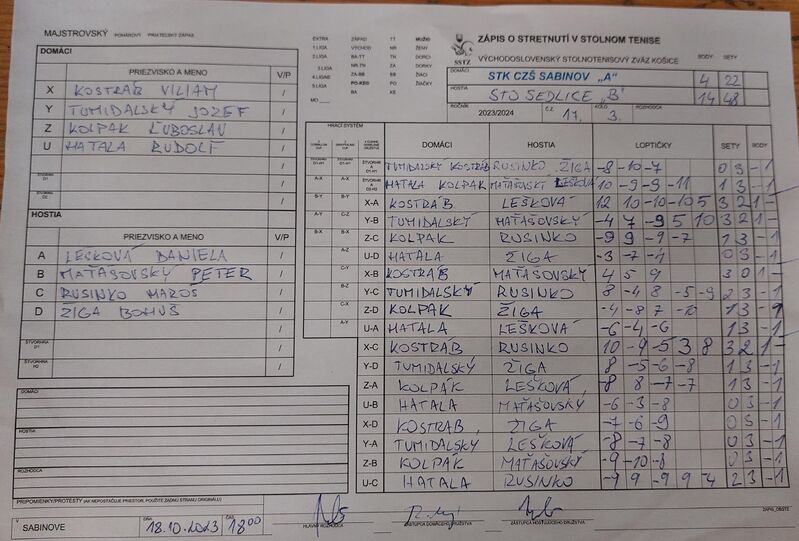 MAJSTROVSKÝ POHÁROVÝ PRIATEĽSKÝ ZÁPAS
ZÁPIS O STRETNUTÍ V STOLNOM TENISE
SSTZ
VÝCHODOSLOVENSKÝ STOLNOTENISOVÝ ZVÄZ KOŠICE
BODY SETY
DOMÁCI STK CZŠ SABINOV „A" 4 22
HOSTIA STO SEDLICE „B" 14 48
ROČNÍK 2023/2024 Č.Z. 17. KOLO 3. ROZHODCA
EXTRA ZÁPAD TT MUŽI
1.LIGA VÝCHOD NR ŽENY
2.LIGA BA-TT TN DORCI
3.LIGA NR-TN ZA DORKY
4.LIGA ZA-BB BB ŽIACI
5.LIGA PO-KE PO ŽIAČKY
MO BA KE
DOMÁCI
PRIEZVISKO A MENO V/P
X KOSTRÁB VILIAM /
Y TUMIDALSKÝ JOZEF /
Z KOLPAK ĽUBOSLAV /
U HATALA RUDOLF /
HOSTIA
PRIEZVISKO A MENO V/P
A LEŠKOVÁ DANIELA /
B MAŤAŠOVSKÝ PETER /
C RUSINKO MAROŠ /
D ŽIGA BOHUŠ /
HRACÍ SYSTÉM
DOMÁCI HOSTIA LOPTIČKY SETY BODY
TUMIDALSKÝ KOSTRÁB RUSINKO ŽIGA -8 -10 -7 0 3 -1
HATALA KOLPAK MAŤAŠOVSKÝ LEŠKOVÁ 10 -9 -9 -11 1 3 -1
X-A KOSTRÁB LEŠKOVÁ 12 10 -10 -10 5 3 2 1 -
Y-B TUMIDALSKÝ MAŤAŠOVSKÝ -4 7 -9 5 10 3 2 1 -
Z-C KOLPAK RUSINKO -9 9 -9 -7 1 3 -1
U-D HATALA ŽIGA -3 -7 -4 0 3 -1
X-B KOSTRÁB MAŤAŠOVSKÝ 4 5 9 3 0 1 -
Y-C TUMIDALSKÝ RUSINKO 8 -4 8 -5 -9 2 3 -1
Z-D KOLPAK ŽIGA -4 -8 7 1 3
U-A HATALA LEŠKOVÁ -6 -4 -6 3 -1
X-C KOSTRÁB RUSINKO 10 -9 -5 3 8 3 2 1 -
Y-D TUMIDALSKÝ ŽIGA 8 -5 -6 -8 1 3 -1
Z-A KOLPÁK LEŠKOVÁ 8 -7 -7 1 3 -1
U-B HATALA MAŤAŠOVSKÝ -6 -3 -8 0 3 -1
X-D KOSTRAB ŽIGA -7 -6 -9 0 3 -1
Y-A TUMIDALSKÝ LEŠKOVÁ -8 -7 -8 0 3 -1
Z-B KOLPAK MAŤAŠOVSKÝ -9 -10 -8 0 3 -1
U-C HATALA RUSINKO -9 9 -9 9 2 3 -1
DOMÁCI
HOSTIA
ROZHODCA
PRIPOMIENKY/PROTESTY (AK NEPOSTAČUJE PRIESTOR, POUŽITE ZADNÚ STRANU ORIGINÁLU)
V SABINOVE DŇA 18.10.2023 ČAS 18 00
HLAVNÝ ROZHODCA ZÁSTUPCA DOMÁCEHO DRUŽSTVA ZÁSTUPCA HOSŤUJÚCEHO DRUŽSTVA